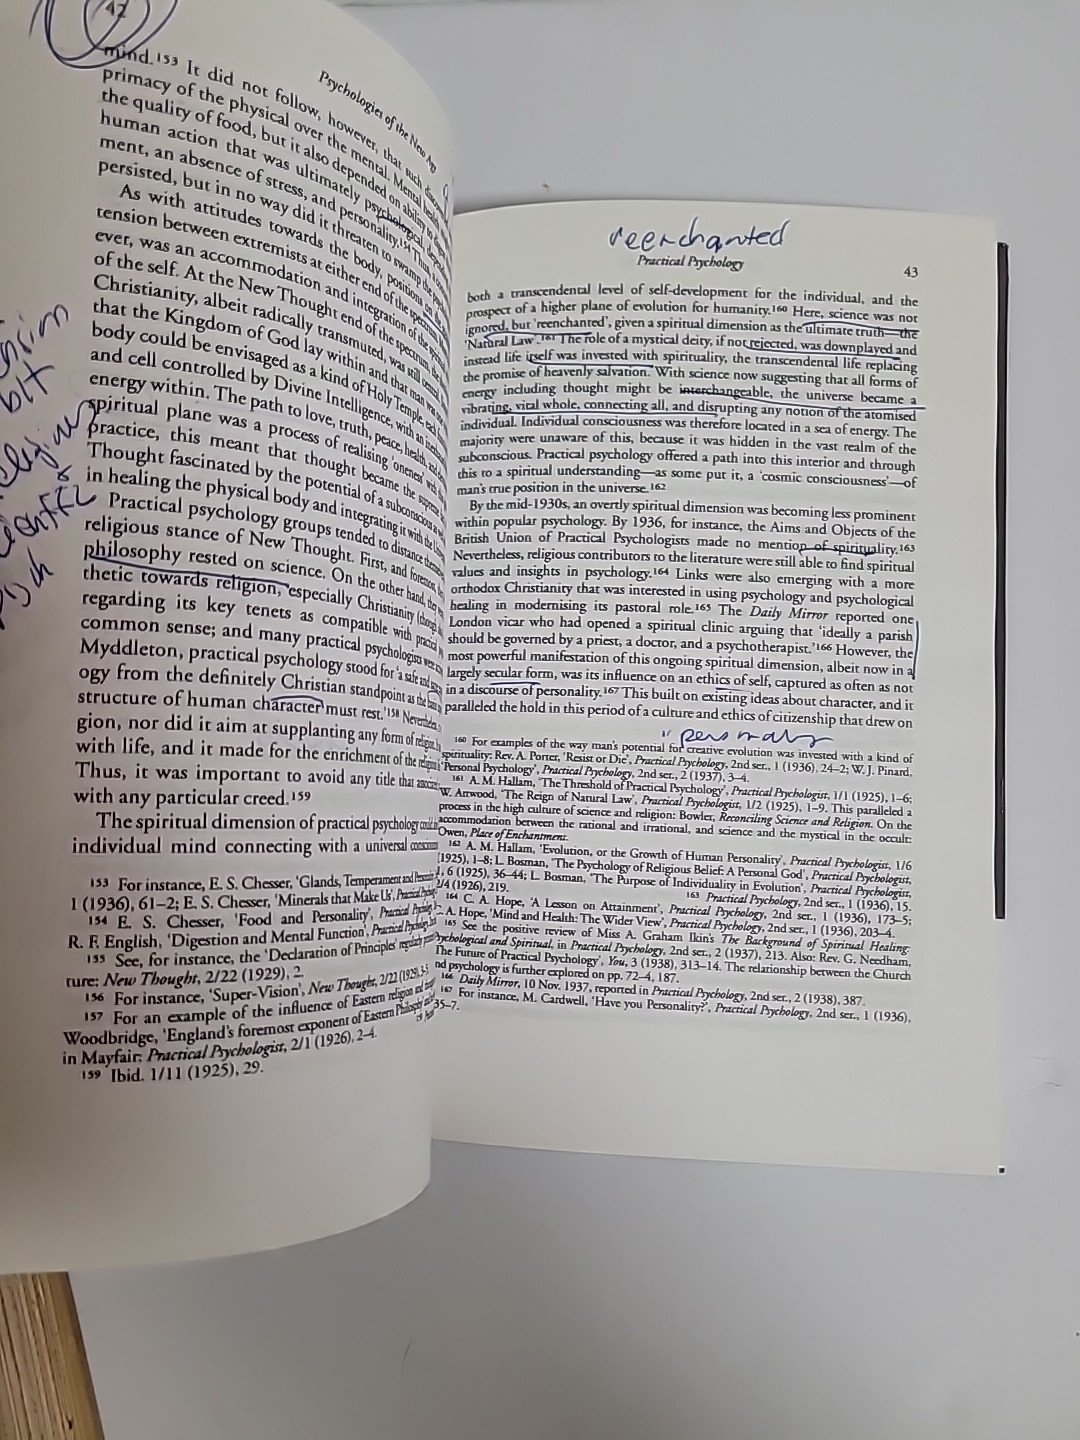 42
Psychologies of the New Age
mind.153 It did not follow, however, that such
primacy of the physical over the mental. Mental health
the quality of food, but it also depended on ability to
human action that was ultimately psychological, dependent
ment, an absence of stress, and personality.154 Thus,
persisted, but in no way did it threaten to swamp the
As with attitudes towards the body, positions on the
tension between extremists at either end of the spectrum.
ever, was an accommodation and integration of the spiritual
of the self. At the New Thought end of the spectrum, the
Christianity, albeit radically transmuted, was still central
that the Kingdom of God lay within and that man was
body could be envisaged as a kind of Holy Temple, each
and cell controlled by Divine Intelligence, with an
energy within. The path to love, truth, peace, health, and
spiritual plane was a process of realising 'oneness' with
practice, this meant that thought became the supreme
Thought fascinated by the potential of a subconscious
in healing the physical body and integrating it with the
Practical psychology groups tended to distance themselves
religious stance of New Thought. First, and foremost,
philosophy rested on science. On the other hand, they
thetic towards religion, especially Christianity (though
regarding its key tenets as compatible with practical
common sense; and many practical psychologists were
Myddleton, practical psychology stood for 'a safe and
ogy from the definitely Christian standpoint as the
structure of human character must rest.'158 Nevertheless,
gion, nor did it aim at supplanting any form of religion.
with life, and it made for the enrichment of the
Thus, it was important to avoid any title that
with any particular creed.159
The spiritual dimension of practical psychology
individual mind connecting with a universal
153 For instance, E. S. Chesser, 'Glands, Temperament and
1 (1936), 61–2; E. S. Chesser, 'Minerals that Make Us',
154 E. S. Chesser, 'Food and Personality', Practical
R. F. English, 'Digestion and Mental Function',
155 See, for instance, the 'Declaration of Principles' regularly
ture: New Thought, 2/22 (1929), 2.
156 For instance, 'Super-Vision', New Thought, 2/22 (1929),
157 For an example of the influence of Eastern religion and
Woodbridge, 'England's foremost exponent of Eastern Philosophy
in Mayfair: Practical Psychologist, 2/1 (1926), 2–4.
159 Ibid. 1/11 (1925), 29.
reenchanted
Practical Psychology 43
both a transcendental level of self-development for the individual, and the
prospect of a higher plane of evolution for humanity.160 Here, science was not
ignored, but 'reenchanted', given a spiritual dimension as the ultimate truth—the
'Natural Law'.161 The role of a mystical deity, if not rejected, was downplayed and
instead life itself was invested with spirituality, the transcendental life replacing
the promise of heavenly salvation. With science now suggesting that all forms of
energy including thought might be interchangeable, the universe became a
vibrating, vital whole, connecting all, and disrupting any notion of the atomised
individual. Individual consciousness was therefore located in a sea of energy. The
majority were unaware of this, because it was hidden in the vast realm of the
subconscious. Practical psychology offered a path into this interior and through
this to a spiritual understanding—as some put it, a 'cosmic consciousness'—of
man's true position in the universe.162
By the mid-1930s, an overtly spiritual dimension was becoming less prominent
within popular psychology. By 1936, for instance, the Aims and Objects of the
British Union of Practical Psychologists made no mention of spirituality.163
Nevertheless, religious contributors to the literature were still able to find spiritual
values and insights in psychology.164 Links were also emerging with a more
orthodox Christianity that was interested in using psychology and psychological
healing in modernising its pastoral role.165 The Daily Mirror reported one
London vicar who had opened a spiritual clinic arguing that 'ideally a parish
should be governed by a priest, a doctor, and a psychotherapist.'166 However, the
most powerful manifestation of this ongoing spiritual dimension, albeit now in a
largely secular form, was its influence on an ethics of self, captured as often as not
in a discourse of personality.167 This built on existing ideas about character, and it
paralleled the hold in this period of a culture and ethics of citizenship that drew on
160 For examples of the way man's potential for creative evolution was invested with a kind of
spirituality: Rev. A. Porter, 'Resist or Die', Practical Psychology, 2nd ser., 1 (1936), 24–2; W. J. Pinard,
'Personal Psychology', Practical Psychology, 2nd ser., 2 (1937), 3–4.
161 A. M. Hallam, 'The Threshold of Practical Psychology', Practical Psychologist, 1/1 (1925), 1–6;
W. Attwood, 'The Reign of Natural Law', Practical Psychologist, 1/2 (1925), 1–9. This paralleled a
process in the high culture of science and religion: Bowler, Reconciling Science and Religion. On the
accommodation between the rational and irrational, and science and the mystical in the occult:
Owen, Place of Enchantment.
162 A. M. Hallam, 'Evolution, or the Growth of Human Personality', Practical Psychologist, 1/6
(1925), 1–8; L. Bosman, 'The Psychology of Religious Belief: A Personal God', Practical Psychologist,
1, 6 (1925), 36–44; L. Bosman, 'The Purpose of Individuality in Evolution', Practical Psychologist,
2/4 (1926), 219.
163 Practical Psychology, 2nd ser., 1 (1936), 15.
164 C. A. Hope, 'A Lesson on Attainment', Practical Psychology, 2nd ser., 1 (1936), 173–5;
C. A. Hope, 'Mind and Health: The Wider View', Practical Psychology, 2nd ser., 1 (1936), 203–4.
165 See the positive review of Miss A. Graham Ikin's The Background of Spiritual Healing:
Psychological and Spiritual, in Practical Psychology, 2nd ser., 2 (1937), 213. Also: Rev. G. Needham,
'The Future of Practical Psychology', You, 3 (1938), 313–14. The relationship between the Church
nd psychology is further explored on pp. 72–4, 187.
166 Daily Mirror, 10 Nov. 1937, reported in Practical Psychology, 2nd ser., 2 (1938), 387.
167 For instance, M. Cardwell, 'Have you Personality?', Practical Psychology, 2nd ser., 1 (1936),
35–7.